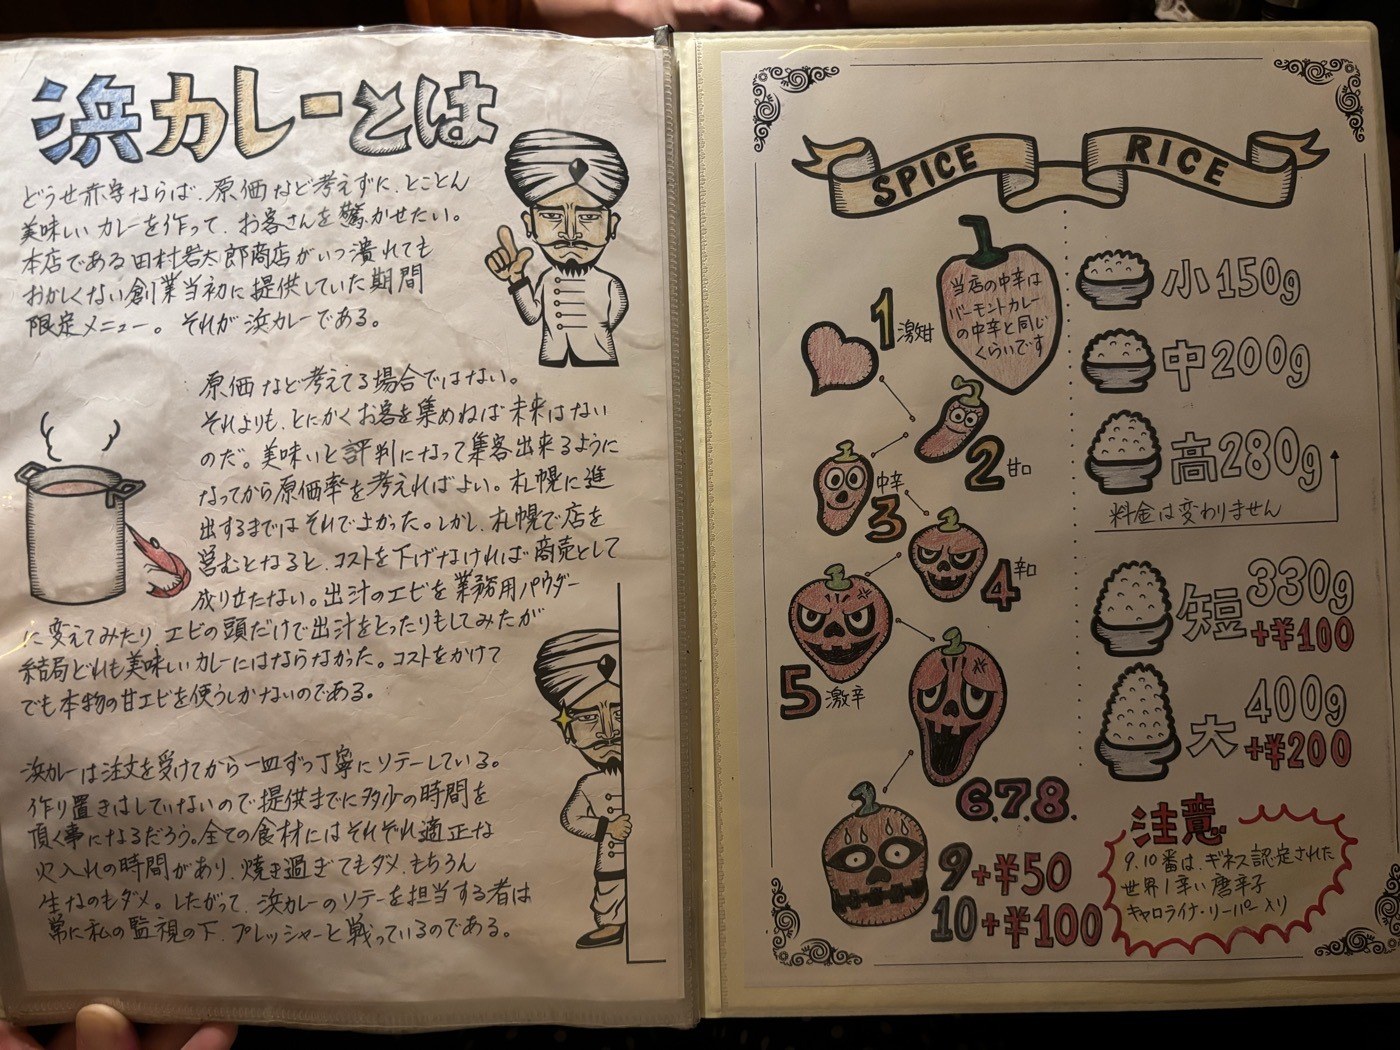 浜カレーとは
どうせ赤字ならば、原価など考えずに、とことん
美味しいカレーを作って、お客さんを驚かせたい。
本店である田村岩太郎商店がいつ潰れても
おかしくない創業当初に提供していた期間
限定メニュー。それが浜カレーである。
原価など考えてる場合ではない。
それよりも、とにかくお客を集めねば未来はない
のだ。美味いと評判になって集客出来るように
なってから原価率を考えればよい。札幌に進
出するまではそれでよかった。しかし、札幌で店を
営むとなると、コストを下げなければ商売として
成り立たない。出汁のエビを業務用パウダー
に変えてみたり、エビの頭だけで出汁をとったりもしてみたが
結局どれも美味しいカレーにはならなかった。コストをかけて
でも本物の甘エビを使うしかないのである。
浜カレーは注文を受けてから一皿ずつ丁寧にソテーしている。
作り置きはしていないので提供までに多少の時間を
頂く事になるだろう。全ての食材にはそれぞれ適正な
火入れの時間があり、焼き過ぎてもダメ、もちろん
生なのもダメ。したがって、浜カレーのソテーを担当する者は
常に私の監視の下、プレッシャーと戦っているのである。
SPICE RICE
当店の中辛は
バーモントカレー
の中辛と同じ
くらいです
1 激甘
2 甘口
中辛
3
4 辛口
5 激辛
6.7.8.
9+¥50
10+¥100
小150g
中200g
高280g
料金は変わりません
短330g
+¥100
大400g
+¥200
注意
9.10番は、ギネス認定された
世界1辛い唐辛子
キャロライナ・リーパー入り